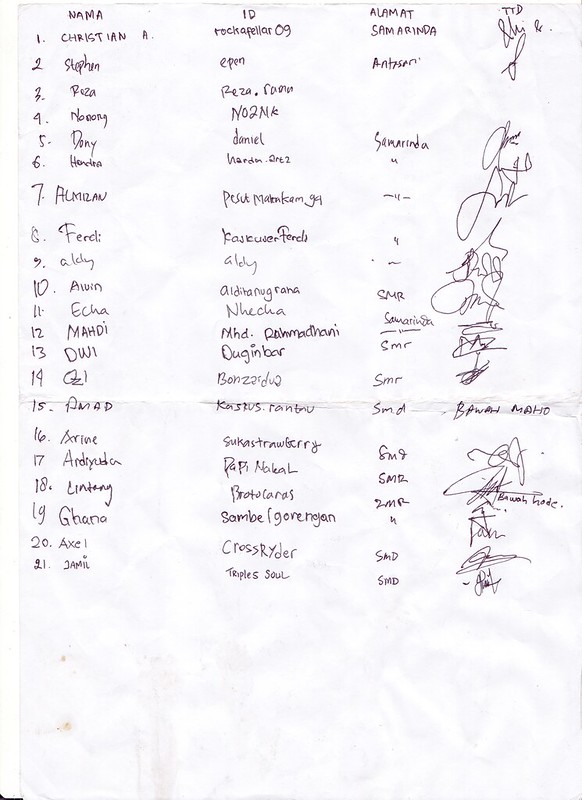 NAMA ID ALAMAT TTD
1. CHRISTIAN A. rockafellar09 SAMARINDA
2 Stephen epen Antasari
3. Reza Reza.rama
4. Nanang NO2NK
5. Dony daniel Samarinda
6. Hendra "
7. ALMIZAN -"-
8. Ferdi KaskuserFerdi "
9. aldy aldy
10. Alvin alditanugrana SMR
11. Echa Nhecha Samarinda
12 MAHDI Mhd. Rahmadhani
13 DWI Duginbar Smr
14 Smr
15. AMAD Smd BAWAH MAHO
16. Arine sukastrawberry Smd
17 PaPi NakaL SMR
18. Lintang SMR Bawah hode.
19 Ghana Sambelgorengan "
20. Axel CrossRyder SMD
21. JAMIL TRIPLES SOUL SMD